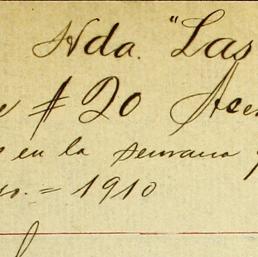 Hda. "Las
# 20
en la semana
1910